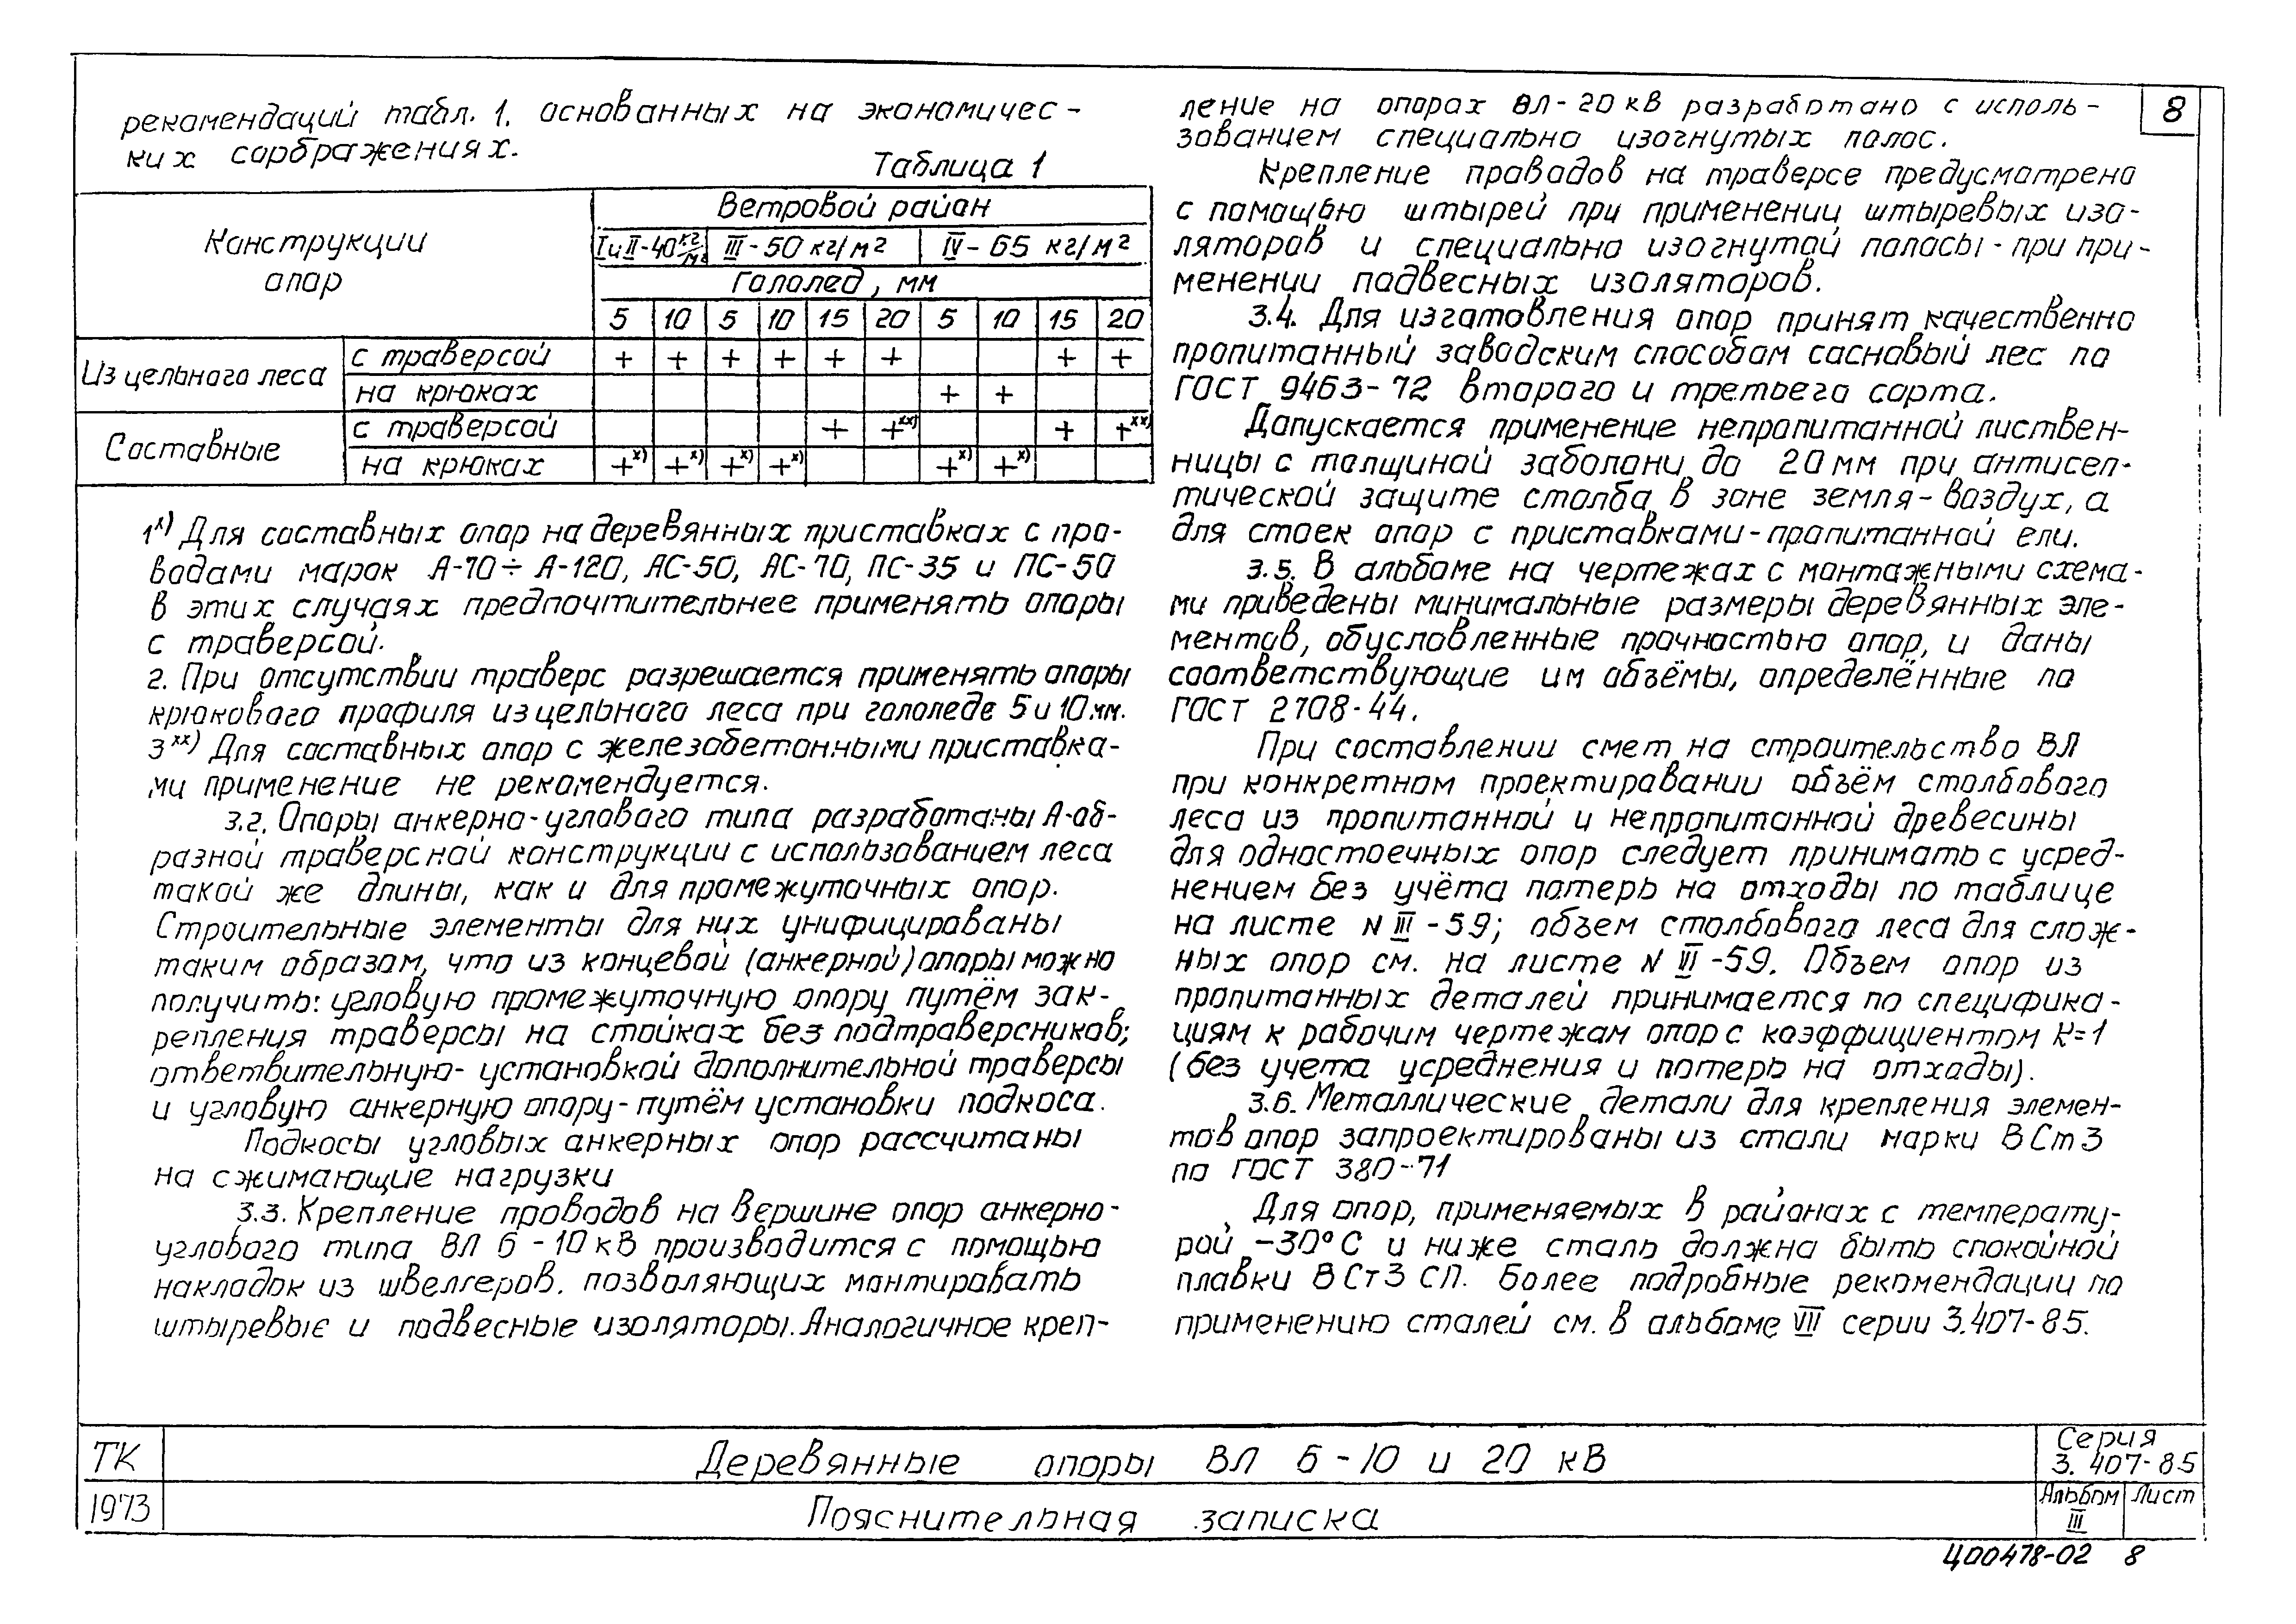 рекомендаций табл. 1. основанных на экономичес-
ких сорбражениях.
Таблица 1
Конструкции опор
Ветровой район
I и II-40 кг/м² III-50 кг/м² IV-65 кг/м²
Гололед, мм
5 10 5 10 15 20 5 10 15 20
Из цельного леса
с траверсой + + + + + + + +
на крюках + +
Составные
с траверсой + +хх) + +хх)
на крюках +х) +х) +х) +х) +х) +х)
1х) Для составных опор на деревянных приставках с про-
водами марок А-70÷А-120, АС-50, АС-70, ПС-35 и ПС-50
в этих случаях предпочтительнее применять опоры
с траверсой.
2. При отсутствии траверс разрешается применять опоры
крюкового профиля из цельного леса при гололеде 5 и 10 мм.
3хх) Для составных опор с железобетонными приставка-
ми применение не рекомендуется.
3.2. Опоры анкерно-углового типа разработаны А-об-
разной траверсной конструкции с использованием леса
такой же длины, как и для промежуточных опор.
Строительные элементы для них унифицированы
таким образом, что из концевой (анкерной) опоры можно
получить: угловую промежуточную опору путём зак-
репления траверсы на стойках без подтраверсников;
ответвительную- установкой дополнительной траверсы
и угловую анкерную опору-путём установки подкоса.
Подкосы угловых анкерных опор рассчитаны
на сжимающие нагрузки
3.3. Крепление проводов на вершине опор анкерно-
углового типа ВЛ 6-10 кВ производится с помощью
накладок из швеллеров. позволяющих монтировать
штыревые и подвесные изоляторы. Аналогичное креп-
ление на опорах ВЛ-20 кВ разработано с исполь-
зованием специально изогнутых полос.
Крепление проводов на траверсе предусмотрено
с помощью штырей при применении штыревых изо-
ляторов и специально изогнутой полосы-при при-
менении подвесных изоляторов.
3.4. Для изготовления опор принят качественно
пропитанный заводским способом сосновый лес по
ГОСТ 9463-72 второго и третьего сорта.
Допускается применение непропитанной листвен-
ницы с толщиной заболони до 20 мм при антисеп-
тической защите столба в зоне земля-воздух, а
для стоек опор с приставками-пропитанной ели.
3.5. В альбоме на чертежах с монтажными схема-
ми приведены минимальные размеры деревянных эле-
ментов, обусловленные прочностью опор, и даны
соответствующие им объёмы, определённые по
ГОСТ 2708-44.
При составлении смет на строительство ВЛ
при конкретном проектировании объём столбового
леса из пропитанной и непропитанной древесины
для одностоечных опор следует принимать с усред-
нением без учёта потерь на отходы по таблице
на листе N III-59; объем столбового леса для слож-
ных опор см. на листе N III-59. Объем опор из
пропитанных деталей принимается по специфика-
циям к рабочим чертежам опор с коэффициентом К=1
(без учета усреднения и потерь на отходы).
3.6. Металлические детали для крепления элемен-
тов опор запроектированы из стали марки ВСт3
по ГОСТ 380-71
Для опор, применяемых в районах с температу-
рой -30°С и ниже сталь должна быть спокойной
плавки ВСт3 СП. Более подробные рекомендации по
применению сталей см. в альбоме VII серии 3.407-85.
8
ТК
1973
Деревянные опоры ВЛ 6-10 и 20 кВ
Пояснительная записка
Серия
3.407-85
Альбом Лист
III
Ц00478-02 8